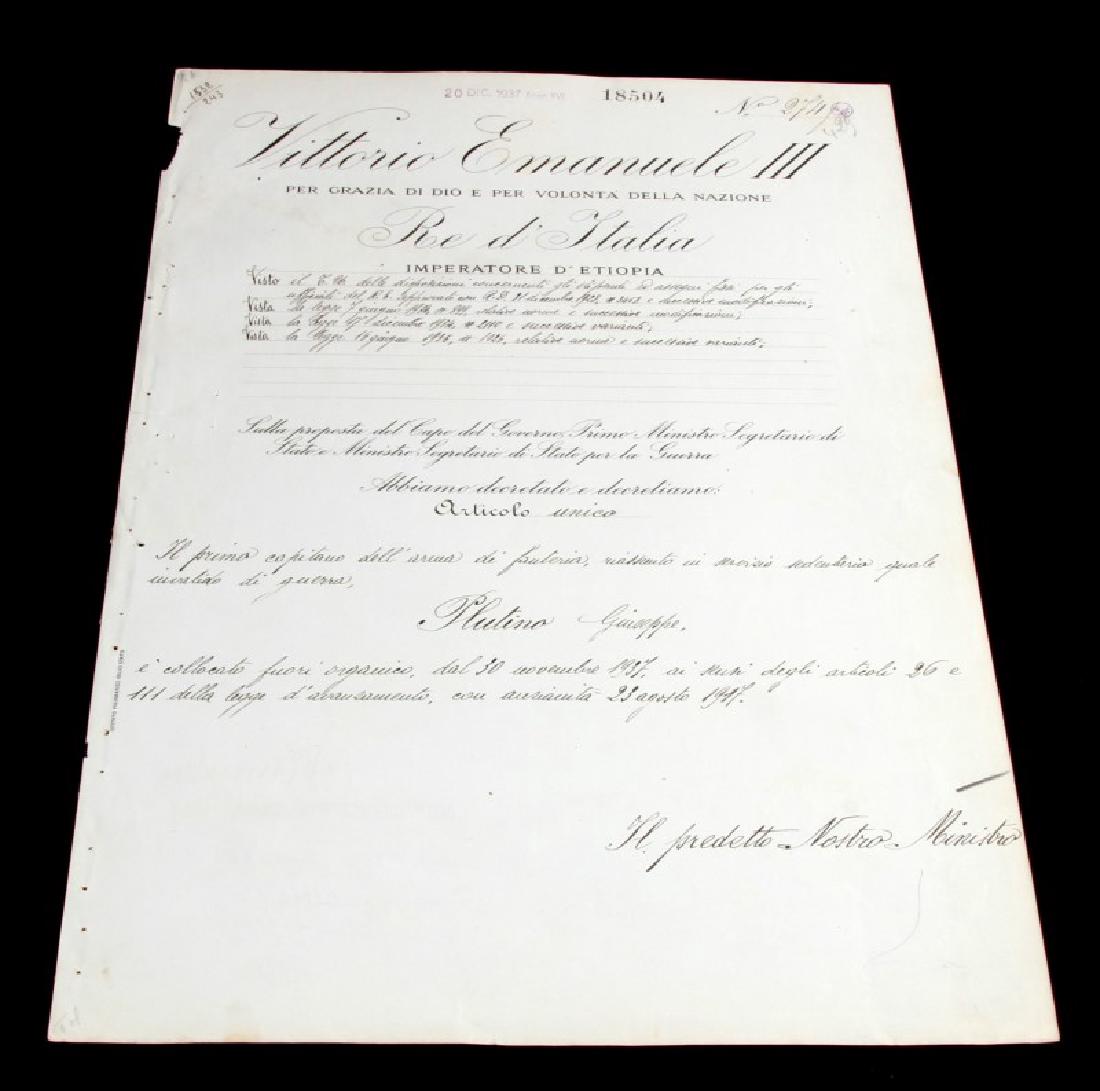 1538
243
20 DIC. 1937 Anno XVI 18504 N.º 274
Vittorio Emanuele III
PER GRAZIA DI DIO E PER VOLONTÀ DELLA NAZIONE
Re d'Italia
IMPERATORE D'ETIOPIA
Visto il T. U. delle disposizioni concernenti gli stipendi ed assegni fissi per gli
ufficiali del R. E. approvato con R. D. 31 dicembre 1928, n. 3458 e successive modificazioni;
Vista la legge 7 giugno 1934, n. 899, relative norme e successive modificazioni;
Vista la legge dicembre e successive varianti;
Vista la legge 16 giugno 1935, n. 1026, relative norme e successive varianti;
Sulla proposta del Capo del Governo, Primo Ministro Segretario di
Stato e Ministro Segretario di Stato per la Guerra
Abbiamo decretato e decretiamo:
Articolo unico
Il primo capitano dell'arma di fanteria, riassunto in servizio sedentario quale
invalido di guerra,
Plutino Giuseppe,
è collocato fuori organico, dal 30 novembre 1937, ai sensi degli articoli 26 e
111 della legge d'avanzamento, con anzianità 23 agosto 1917.
Il predetto Nostro Ministro